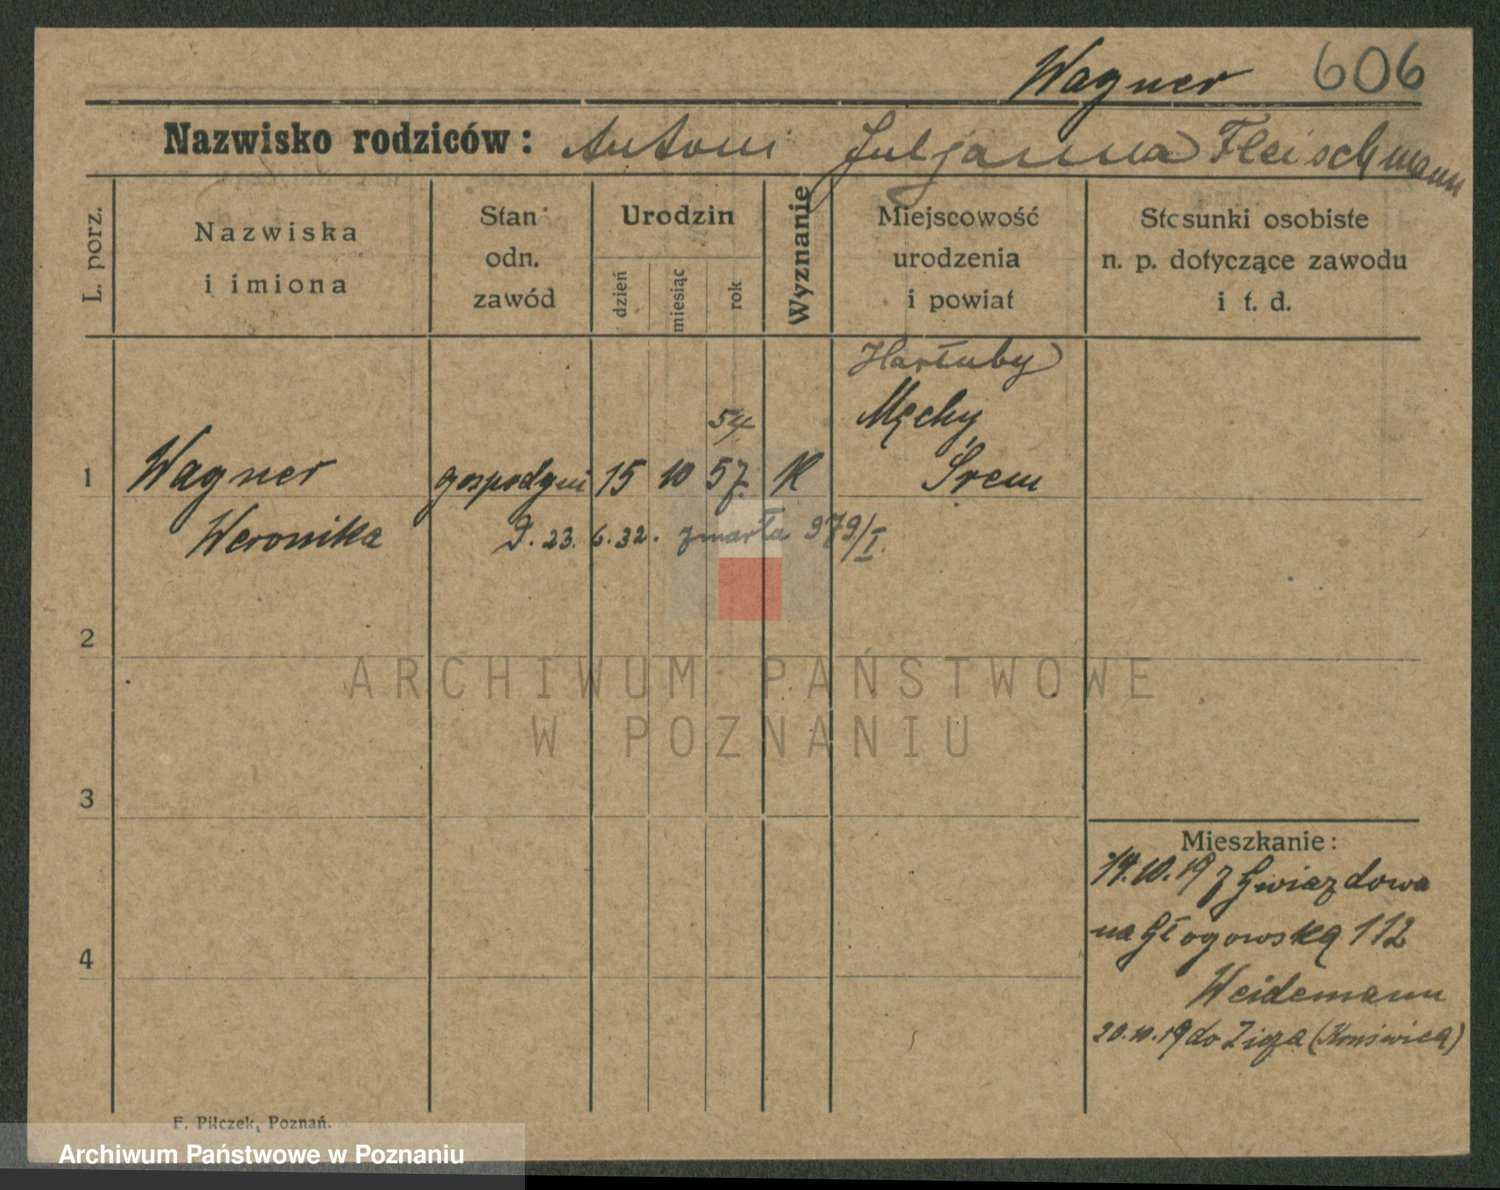 Wagner 606
Nazwisko rodziców: Antoni Juljanna Fleischmann
L. porz.
Nazwiska
i imiona
Stan
odn.
zawód
Urodzin
dzień
miesiąc
rok
Wyznanie
Miejscowość
urodzenia
i powiat
Stosunki osobiste
n. p. dotyczące zawodu
i t. d.
Hartuby
Męchy
54
1 Wagner gospodyni 15 10 57. K Śrem
Weronika D. 23. 6. 32. zmarła 979/I.
2
ARCHIWUM PAŃSTWOWE
W POZNANIU
3
Mieszkanie:
14.10.19 z Gwiazdowa
na Głogowską 112
4
Weidemann
20.10.19 do
F. Pilczek, Poznań.
Archiwum Państwowe w Poznaniu